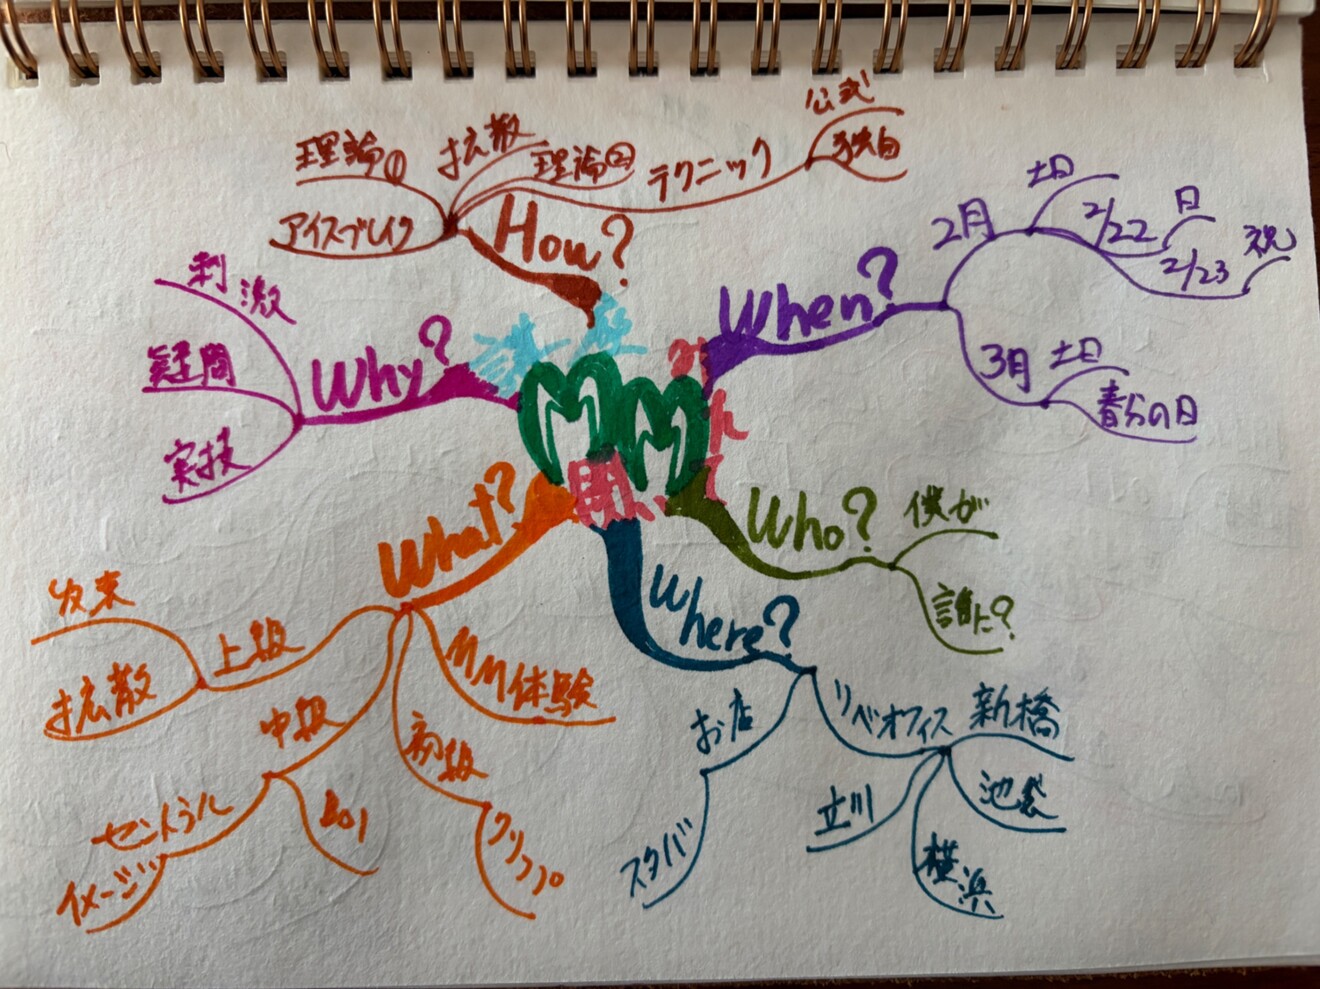 How?
アイスブレイク
理論①
拡散
理論②
テクニック
公式
独自
When?
2月
土日
2/22
日
2/23
祝
3月
土日
春分の日
Who?
僕が
誰に?
Where?
リベオフィス
新橋
池袋
横浜
立川
お店
スタバ
What?
MM体験
初級
クリップ
中級
セントラル
イメージ
上級
拡散
Why?
刺激
疑問
実技
MM